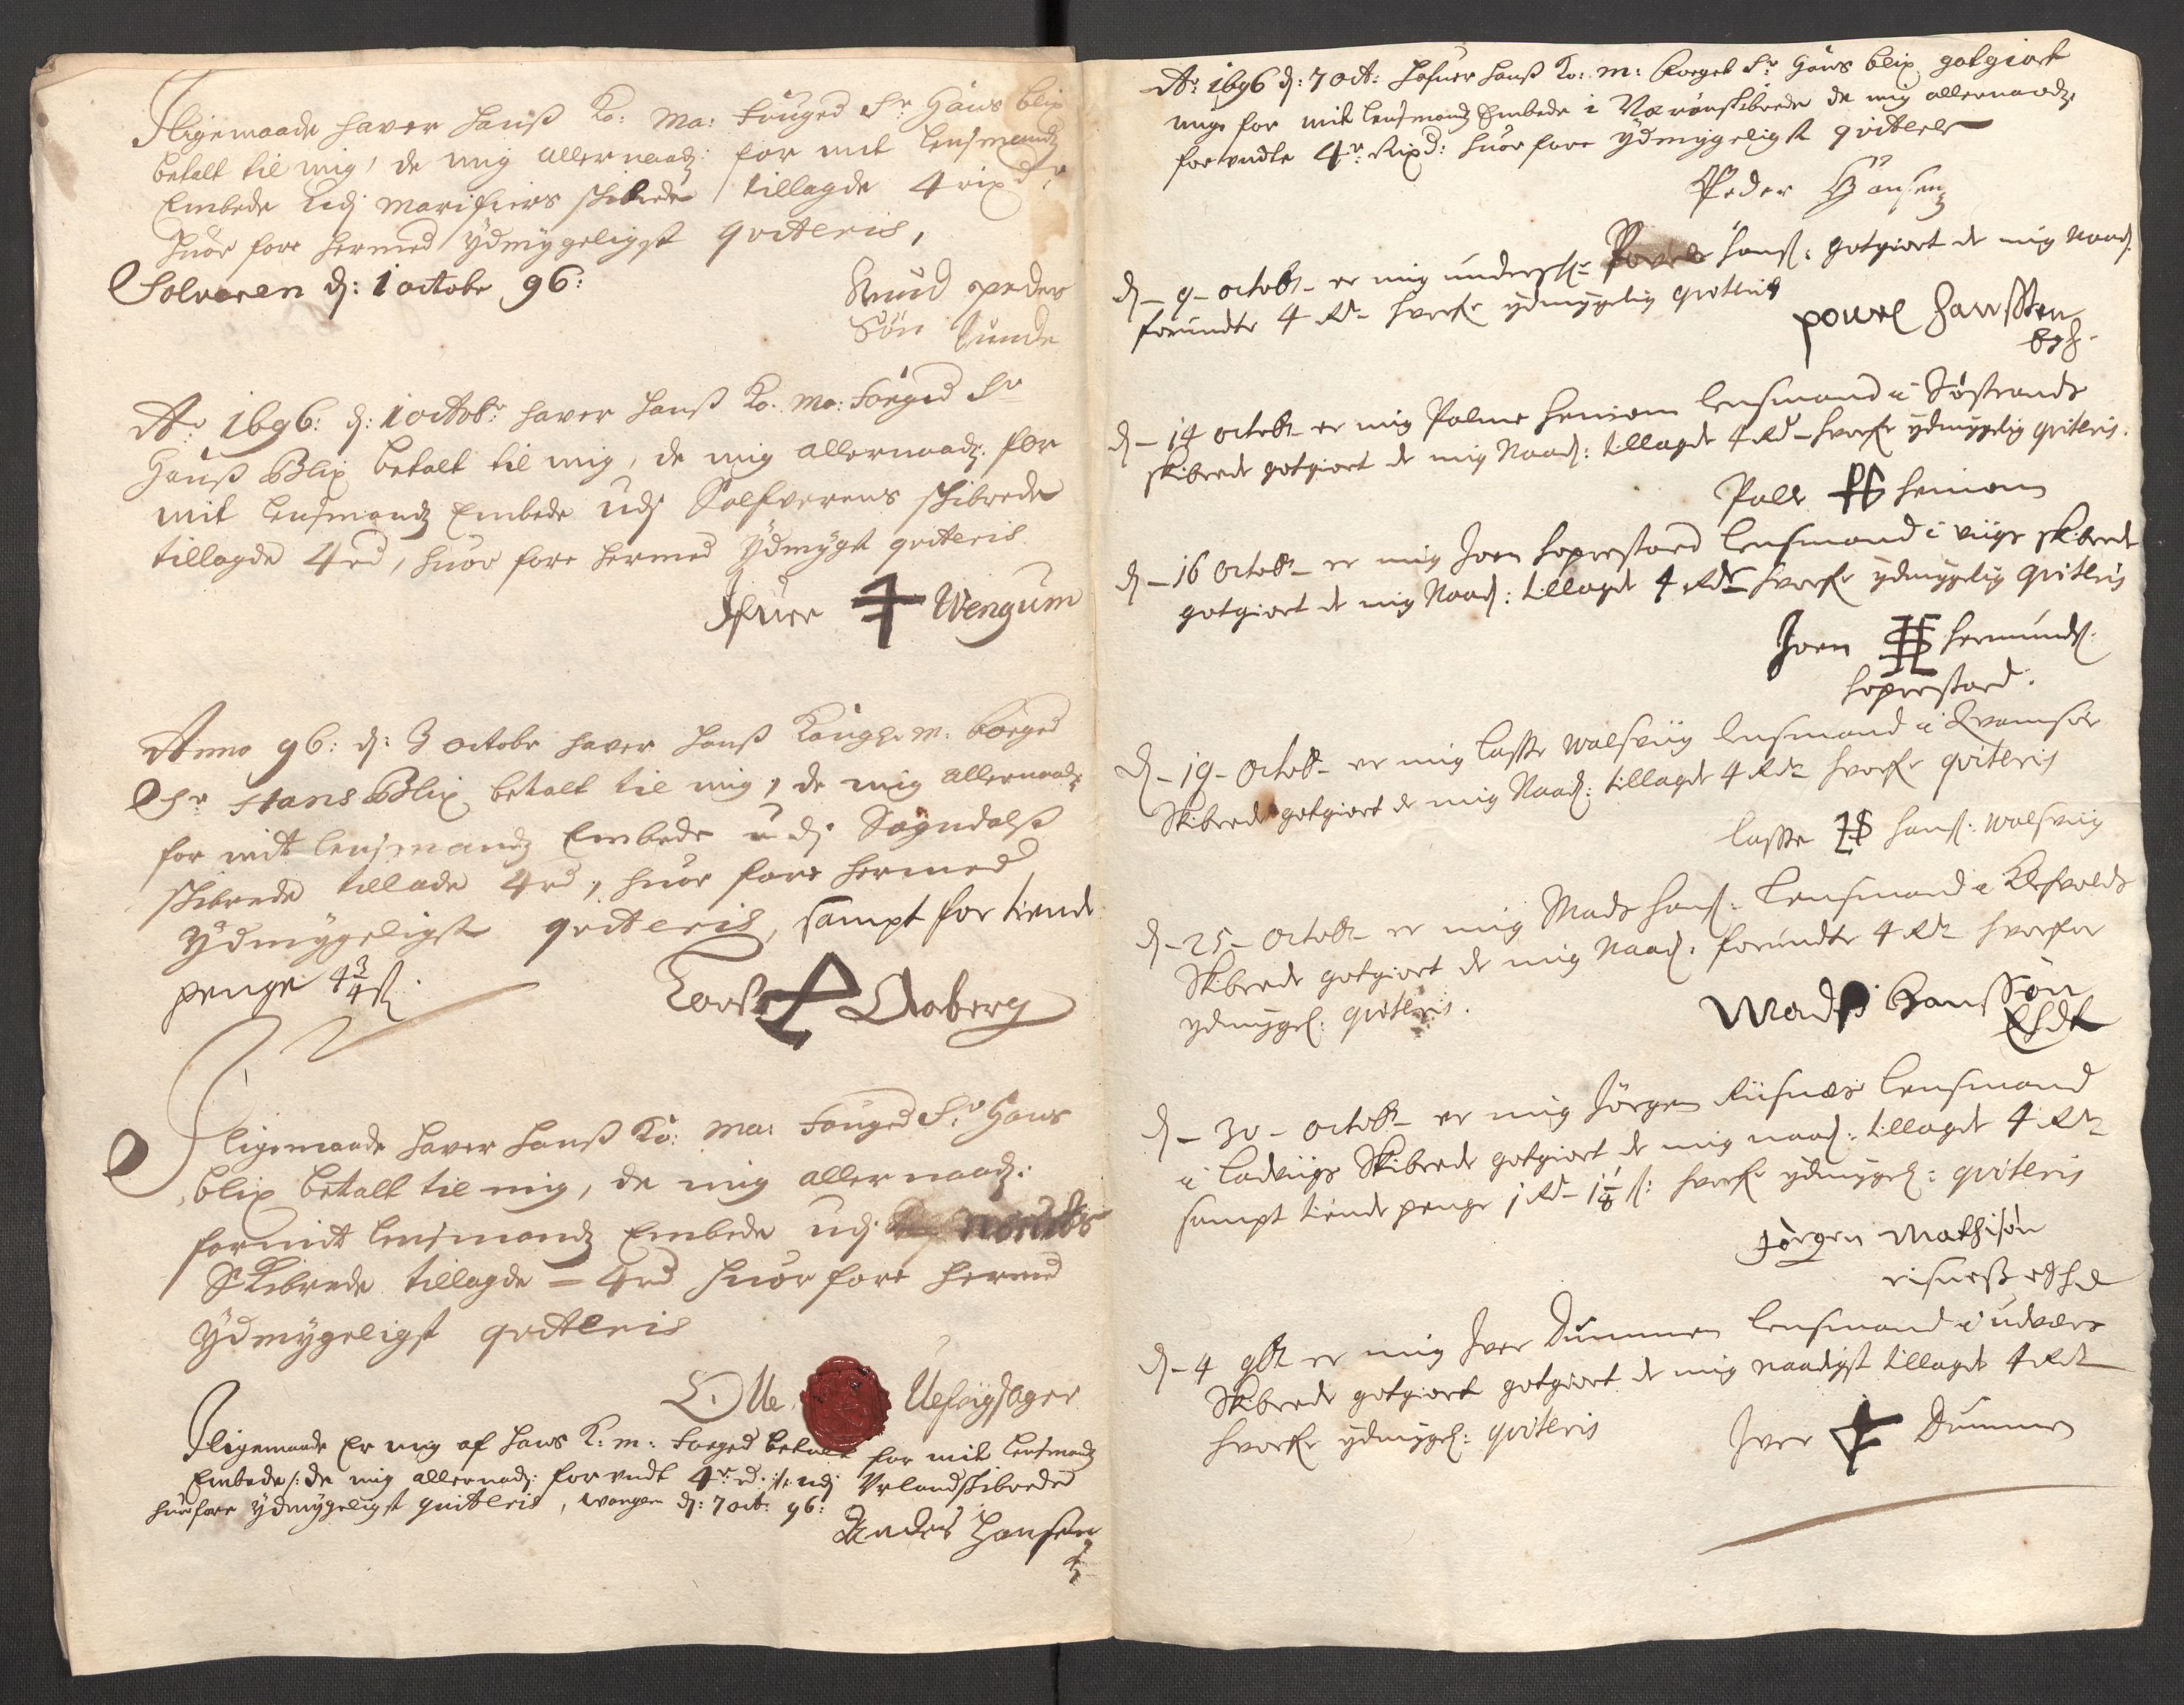 Iligemaade haver hans Ko: Ma: Fouged Sr Hans Blix
betalt til mig, de mig allernaadz: for mit lensmandz
Embede udj Marifiers skibrede tillagde 4 rixdr
huor fore hermed ydmygeligst qvitteris,
Solvoren d: 1 octobr 96:
Knud peder
Søn Lunde
Ao 1696: d: 1 octobr haver hans Ko. Ma: Foeged Sr
Hans Blix betalt til mig, de mig allernaadz. for
mit lensmandz Embede udj Solfverens skibrede
tillagde 4 rd, huor fore hermed ydmygst qvitteris
Ifuer Wengum
Anno 96: d: 3 octobr haver hans Kongge M. Foeged
Sr Hans Blix betalt til mig, de mig allernaadz
for mit lensmandz Embede udj Sogndals
skibrede tillade 4 rd, huor fore hermed
ydmygeligst qvitteris, sampt for tiende
penge 4 3/4 ß.
Aaberg
Iligemaade haver hans Ko: Ma: Fouged Sr Hans
blix betalt til mig, de mig allernaadz:
for mit lensmandz Embede udj norums
Skibrede tillagde - 4 rd huor fore hermed
ydmygeligst qvitteris
Olle
Iligemaade Er mig af hans K: M: Foeged betalt for mit lensmandz
Embede /: de mig allernadz: forundt 4r rd :/ udj Urlandskibrede
huorfore ydmygeligst quitteris, Wangen d: 7 oct: 96:
Anders Hansen
Ao: 1696 d: 7 oct: hafuer hans Ko: M: Foeget Sr Hans blix gotgiort
mig for mit lensmandz Embede i Nærønskibrede de mig allernaadz.
forundte 4r: Rixd: huorfore ydmygeligst qvitteres
Peder Hansen
d - 9 - octobr - er mig underskr Povel hanß. gotgiort de mig Naad.
forundte 4 Rdr hvorfor ydmygelig qvitteris
powel hanssen
d - 14 octobr - er mig Palme heniom lensmand i Søstrands
skibrede gotgiort de mig Naad: tillagde 4 Rd - hvorfor ydmygelig qviteris.
Palle heniom
d - 16 octobr - er mig Joen hoprestad lensmand i viigs skibrede
gotgiort de mig Naad: tillagde 4 Rdr hvorfor ydmygelig qviteris
Joen hermunds.
hoprestad.
d - 19 - octobr - er mig lasse walsviig lensmand i Kvamsøe
Skibrede gotgiort de mig Naad: tillagde 4 Rdr hvorfor qviteris
lasse hanß: walsviig
d - 25 - octobr - er mig Mads hanß: Lensmand i Klefvolds
Skibrede gotgiort de mig Naad: forundte 4 Rdr hvorfor
ydmygel: qviteris.
Mads Hanssøn
d - 30 - octobr - er mig Jørgen Riisnes lensmand
i ladviigs Skibrede gotgiort de mig naad: tillagde 4 Rdr
sampt tiende penge 1 Rd - 1 1/8 ß: hvorfor ydmygel: qviteris
Jørgen Mathisøn
risneß
d - 4 9br er mig Iver Dummen lensmand i udvær
Skibrede gotgiort gotgiort de mig naadigst tillagde 4 Rdr
hvorfor ydmygel: qviteris
Iver Dummen